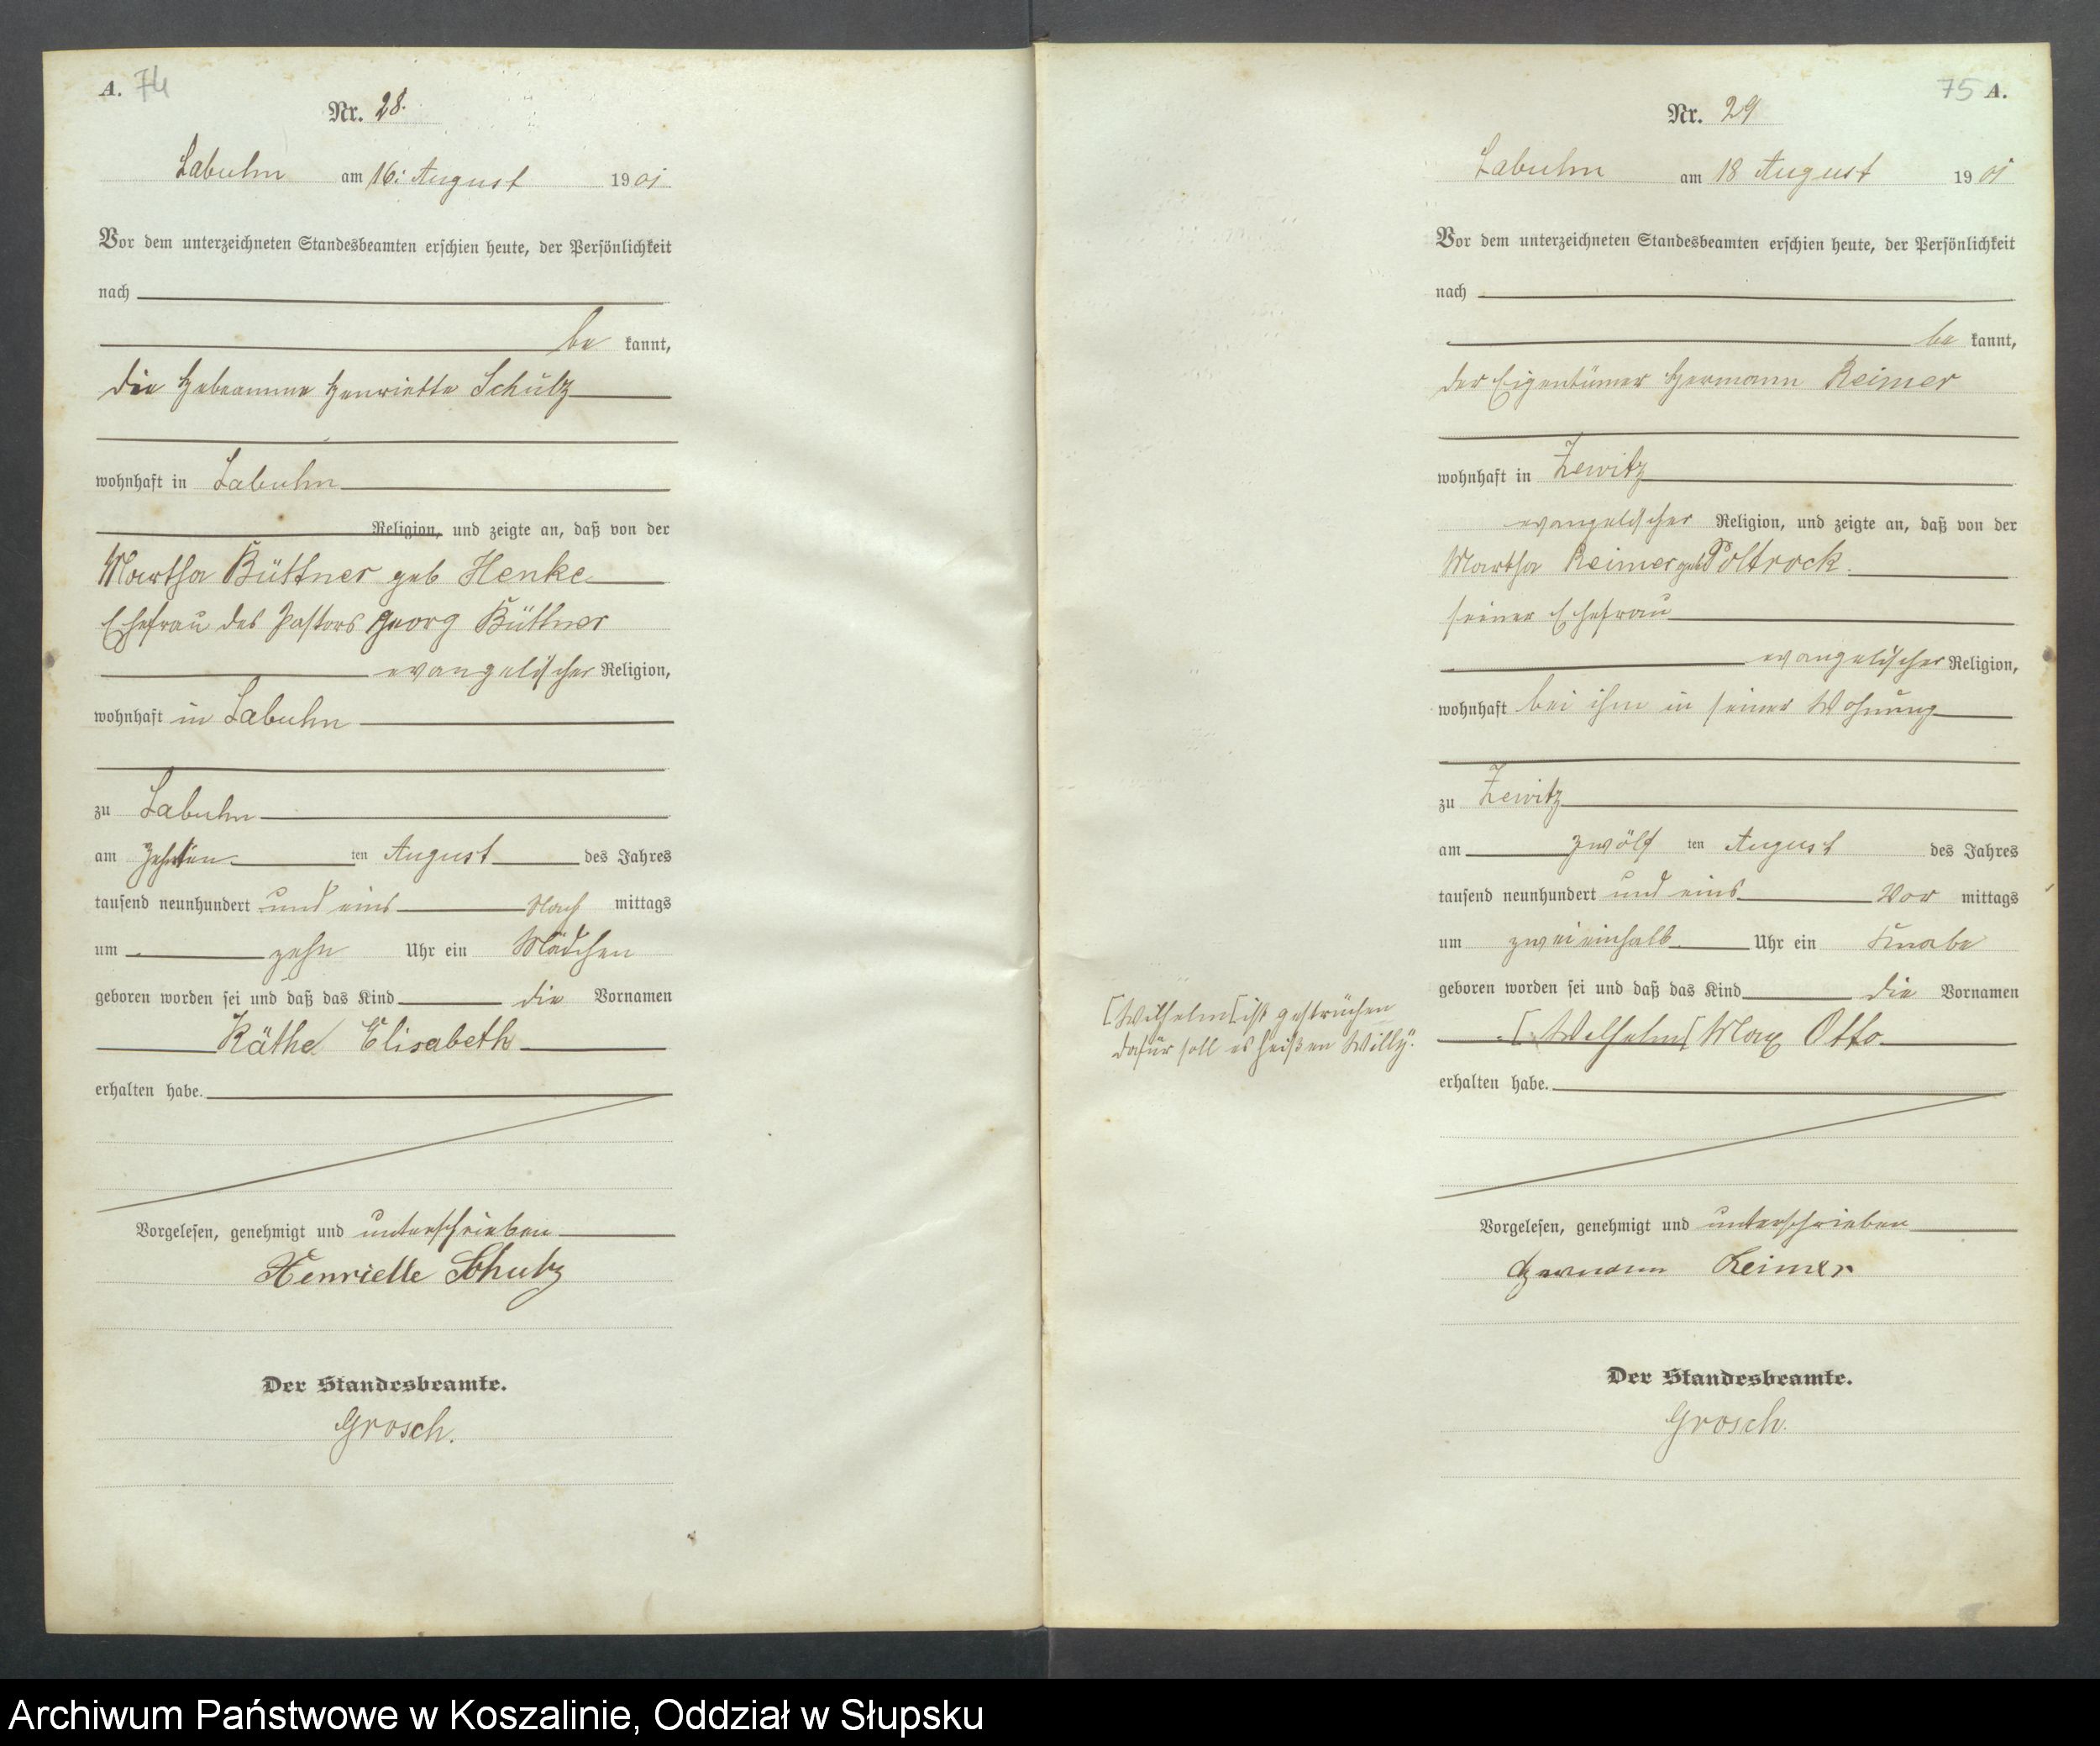 A. 74
Nr. 28.
Labuhn am 16. August 1901
Vor dem unterzeichneten Standesbeamten erschien heute, der Persönlichkeit
nach
be kannt,
die Hebeamme Henriette Schulz
wohnhaft in Labuhn
Religion, und zeigte an, daß von der
Martha Büttner geb Henke
Ehefrau des Pastors Georg Büttner
evangelischer Religion,
wohnhaft in Labuhn
zu Labuhn
am zehnten ten August des Jahres
tausend neunhundert und eins Nach mittags
um zehn Uhr ein Mädchen
geboren worden sei und daß das Kind die Vornamen
Käthe Elisabeth
erhalten habe.
Vorgelesen, genehmigt und unterschrieben
Henriette Schulz
Der Standesbeamte.
Grosch.
75 A.
Nr. 29
Labuhn am 18 August 1901
Vor dem unterzeichneten Standesbeamten erschien heute, der Persönlichkeit
nach
be kannt,
der Eigentümer Hermann Reimer
wohnhaft in Zewitz
evangelischer Religion, und zeigte an, daß von der
Martha Reimer geb Poltrock.
seiner Ehefrau
evangelischer Religion,
wohnhaft bei ihm in seiner Wohnung
zu Zewitz
am zwölf ten August des Jahres
tausend neunhundert und eins Vor mittags
um zweieinhalb Uhr ein Knabe
geboren worden sei und daß das Kind die Vornamen
[Wilhelm[ Max Otto
erhalten habe.
[Wilhelm[ ist gestrichen
dafür soll es heißen Willy.
Vorgelesen, genehmigt und unterschrieben
Hermann Reimer
Der Standesbeamte.
Grosch.
Archiwum Państwowe w Koszalinie, Oddział w Słupsku